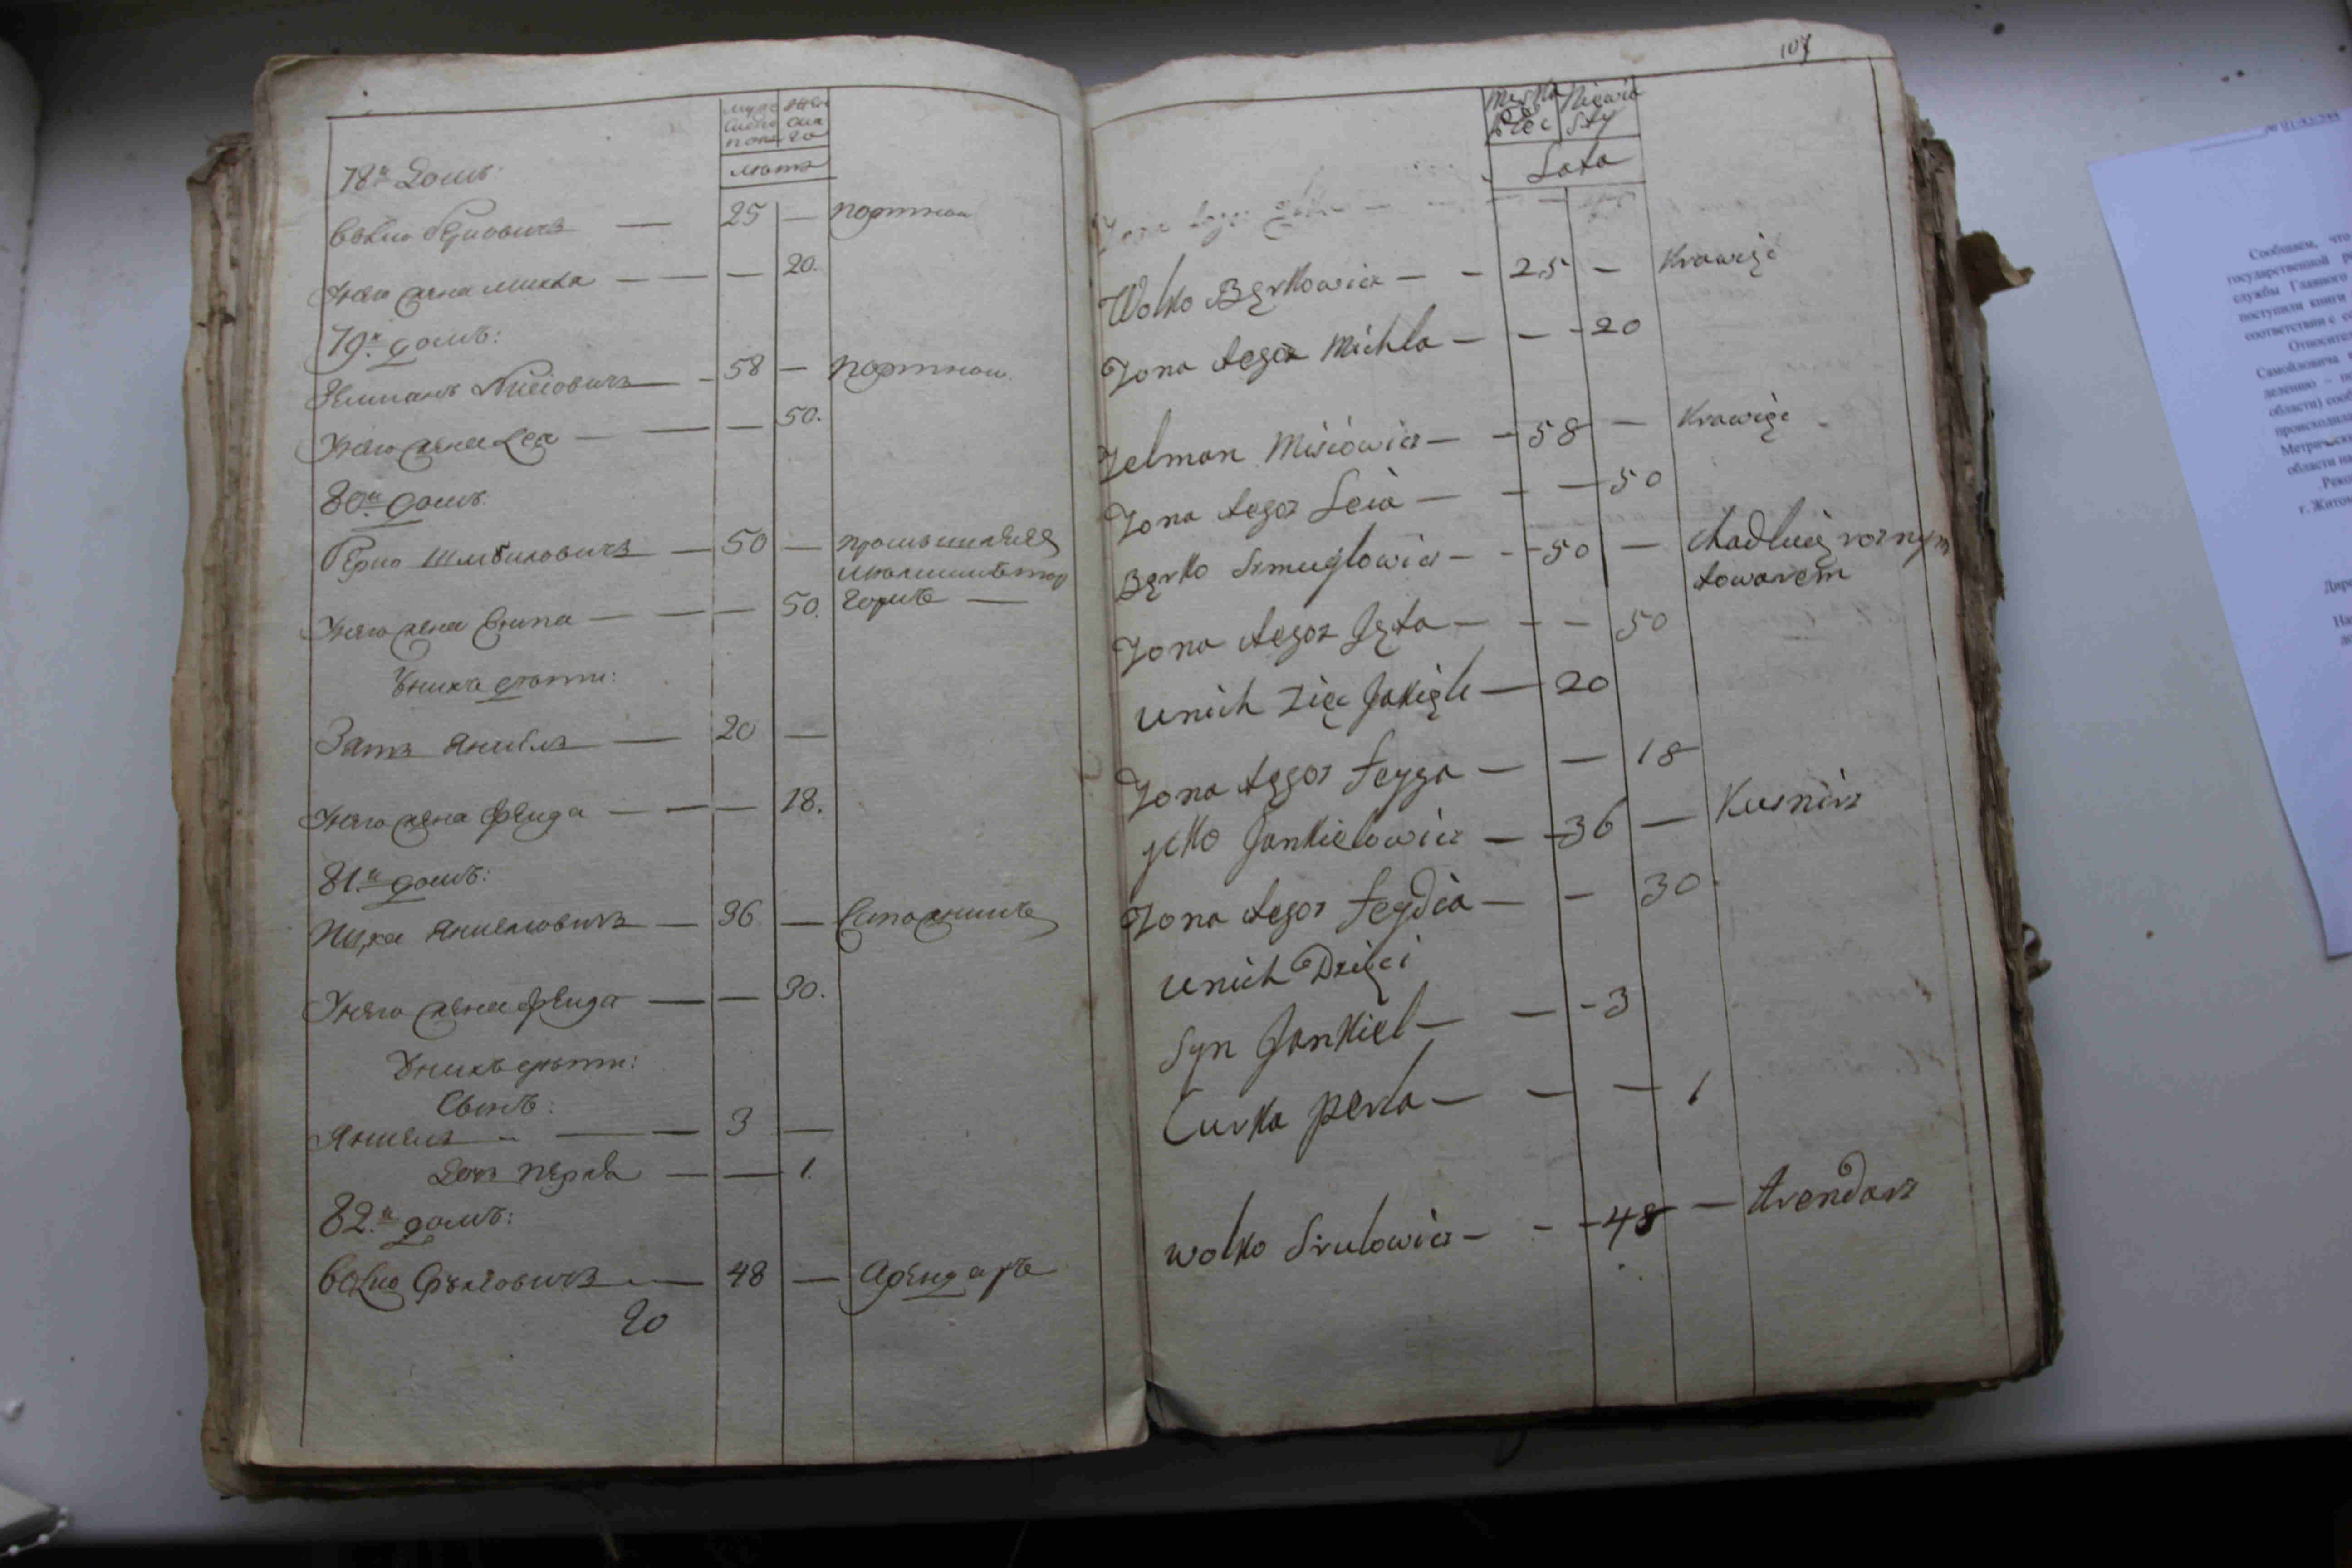 муж
ска
пола
жен
ска
го
лѣта
78й Домъ:
Волко Берковичъ — 25 — портнои
У него жена Михла — — 20.
79й домъ:
Зелманъ Мисiовичъ — 58 — портнои
У него жена Леа — — 50.
80й домъ:
Берко Шмуиловичъ — 50 — промышляеть
У него жена — — 50.
У нихъ дѣти:
Зять Янкель — 20 —
У него жена Феига — — 18.
81й домъ:
Ицко Янкелювичъ — 36 — Сапожникъ
У него жена Феида — — 30.
У нихъ дѣти:
Сынъ:
Янкель — 3 —
Дочь Перла — — 1.
82й домъ:
Волко Сруловичъ — 48 — арендаръ
20
107
Męska
Płec
Niewia
sty
Lata
Wolko Bęrkowicz — - 25 — Krawięc
Zona tegoz Michla — — - 20
Zelman Misiowicz — - 58 — Krawięc
Zona tegoz Leia — - — 50
Bęrko Szmuylowicz — - - 50 — chadluię roznym
towarem
Zona tegoz Jęta — - — 50
unich zięc Jakięlk — 20
Zona tęgoz feyga — — 18
ycko Jankielowicz — - 36 — Kusnirz
Zona tegoz feydia — - 30.
unich Dzięci
Syn Jankięl — — - 3
Curka perla — — — 1
wolko Srulowicz — - - 48 — Arendarz
Сообщаем, что
государственной
службы Главного
поступили книги
соответствии с
Относител
Самойловича
области)
происходил
области на
г. Житом